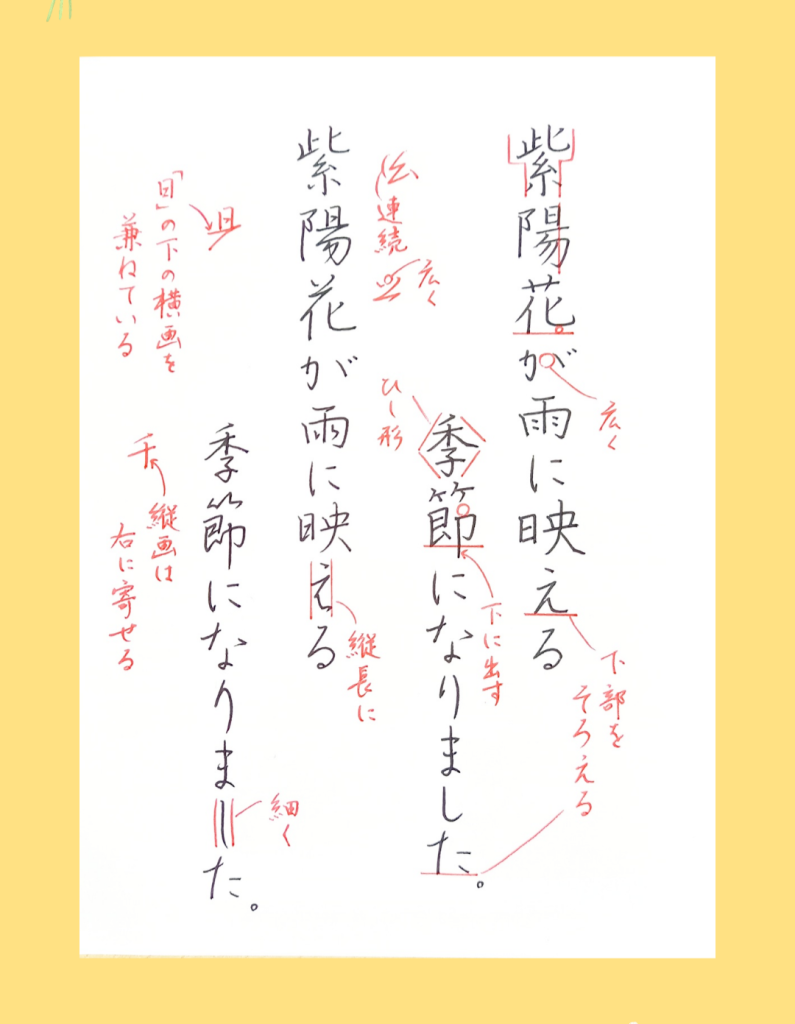 紫陽花が雨に映える
季節になりました。
広く
下に出す
下部を
そろえる
紫陽花が雨に映える
季節になりました。
連続
広く
ひし形
縦長に
細く
「日」の下の横画を
兼ねている
縦画は
右に寄せる